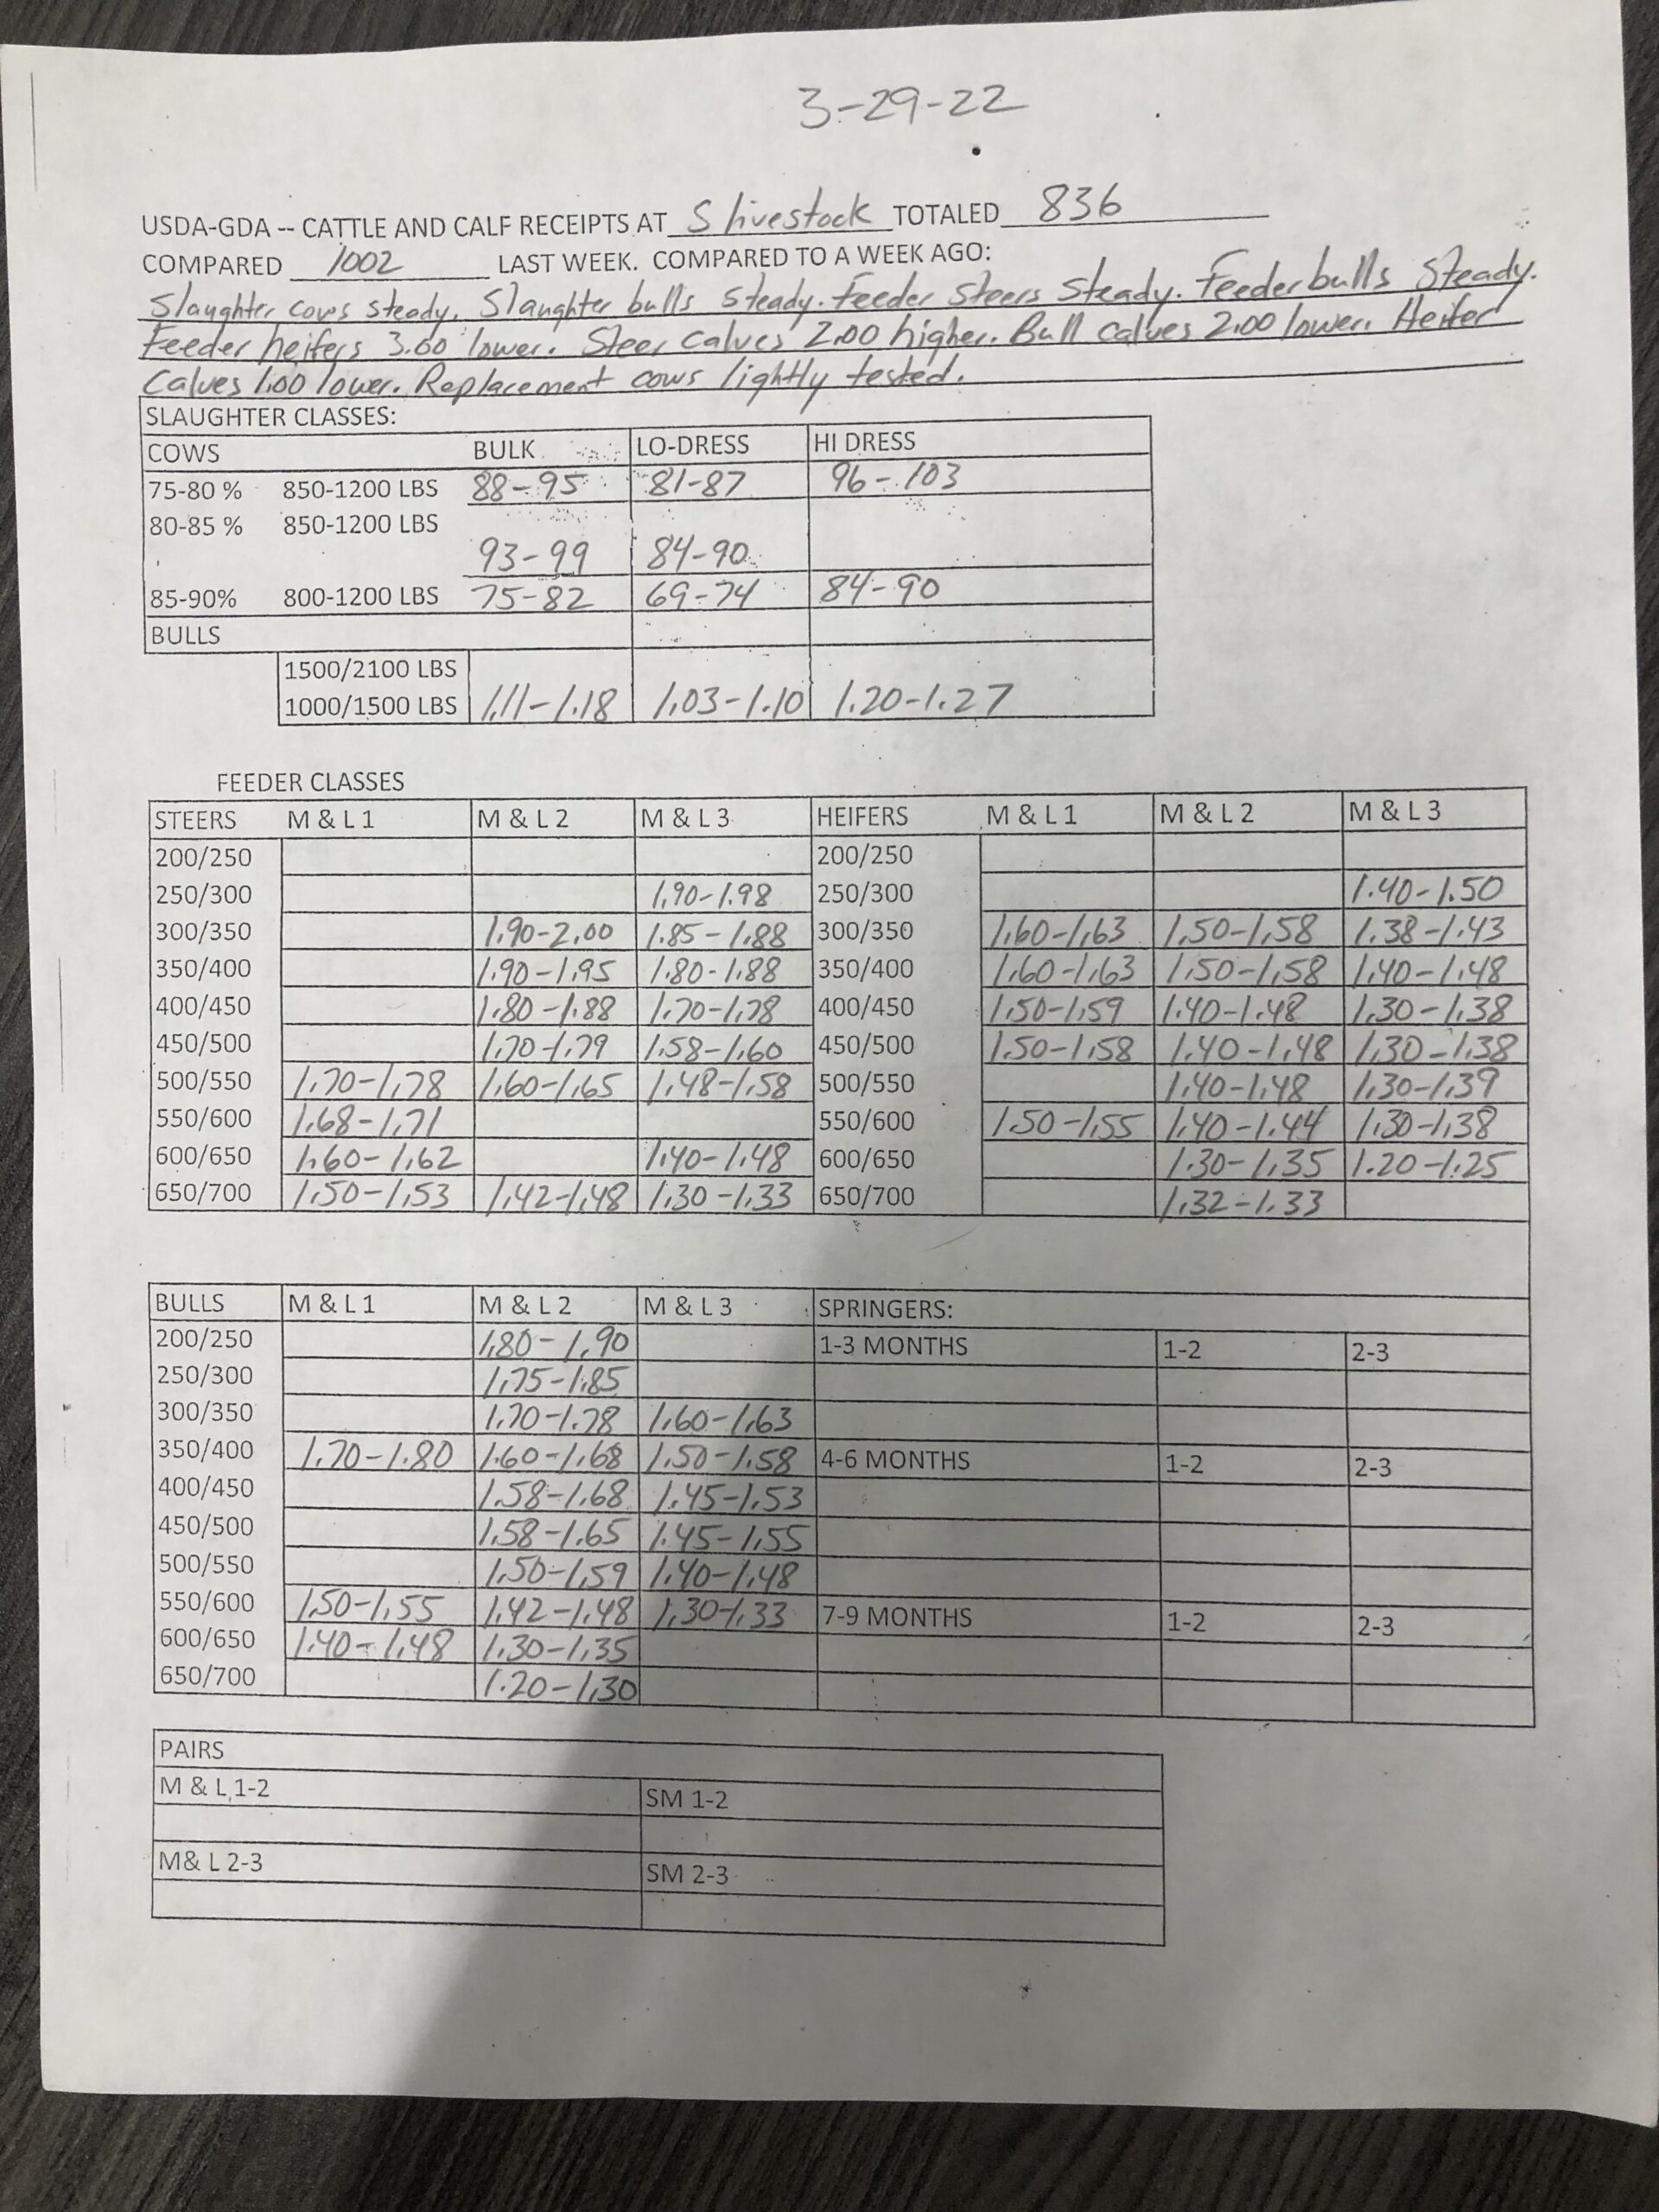 3-29-22
USDA-GDA -- CATTLE AND CALF RECEIPTS AT S livestock TOTALED 836
COMPARED 1002 LAST WEEK. COMPARED TO A WEEK AGO:
Slaughter cows steady. Slaughter bulls steady. Feeder steers steady. Feeder bulls steady.
Feeder heifers 3.00 lower. Steer calves 2.00 higher. Bull calves 2.00 lower. Heifer
calves 1.00 lower. Replacement cows lightly tested.
SLAUGHTER CLASSES:
COWS BULK LO-DRESS HI DRESS
75-80 % 850-1200 LBS 88-95 81-87 96-103
80-85 % 850-1200 LBS
93-99 84-90
85-90% 800-1200 LBS 75-82 69-74 84-90
BULLS
1500/2100 LBS
1000/1500 LBS 1.11-1.18 1.03-1.10 1.20-1.27
FEEDER CLASSES
STEERS M & L 1 M & L 2 M & L 3 HEIFERS M & L 1 M & L 2 M & L 3
200/250 200/250
250/300 1.90-1.98 250/300 1.40-1.50
300/350 1.90-2.00 1.85-1.88 300/350 1.60-1.63 1.50-1.58 1.38-1.43
350/400 1.90-1.95 1.80-1.88 350/400 1.60-1.63 1.50-1.58 1.40-1.48
400/450 1.80-1.88 1.70-1.78 400/450 1.50-1.59 1.40-1.48 1.30-1.38
450/500 1.70-1.79 1.58-1.60 450/500 1.50-1.58 1.40-1.48 1.30-1.38
500/550 1.70-1.78 1.60-1.65 1.48-1.58 500/550 1.40-1.48 1.30-1.39
550/600 1.68-1.71 550/600 1.50-1.55 1.40-1.44 1.30-1.38
600/650 1.60-1.62 1.40-1.48 600/650 1.30-1.35 1.20-1.25
650/700 1.50-1.53 1.42-1.48 1.30-1.33 650/700 1.32-1.33
BULLS M & L 1 M & L 2 M & L 3 SPRINGERS:
200/250 1.80-1.90 1-3 MONTHS 1-2 2-3
250/300 1.75-1.85
300/350 1.70-1.78 1.60-1.63
350/400 1.70-1.80 1.60-1.68 1.50-1.58 4-6 MONTHS 1-2 2-3
400/450 1.58-1.68 1.45-1.53
450/500 1.58-1.65 1.45-1.55
500/550 1.50-1.59 1.40-1.48
550/600 1.50-1.55 1.42-1.48 1.30-1.33 7-9 MONTHS 1-2 2-3
600/650 1.40-1.48 1.30-1.35
650/700 1.20-1.30
PAIRS
M & L 1-2 SM 1-2
M& L 2-3 SM 2-3